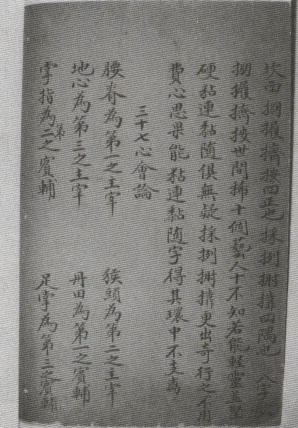 坎西掤擺擠按四正也採挒掤擠四隅也
掤擺擠按世間稀十個藝人十不知若能輕靈並堅
硬黏連黏隨俱無疑採挒掤擠更出奇行之不用
費心思果能黏連黏隨字得其環中不支離
三十七心會論
腰脊為第一之主宰 猴頭為第二之主宰
地心為第三之主宰 丹田為第一之賓輔
掌指為第二之賓輔 足掌為第三之賓輔